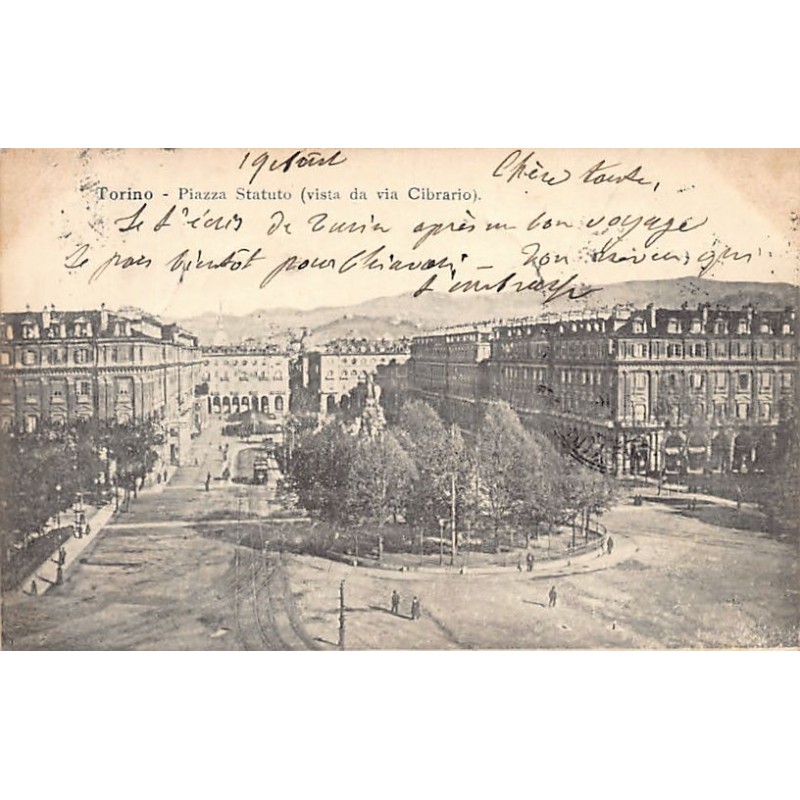 19 Août
Chère tante,
Torino - Piazza Statuto (vista da via Cibrario).
Je t'écris de Turin après un bon voyage
Je pars bientôt pour Chiavari Ton neveu qui
t'embrasse